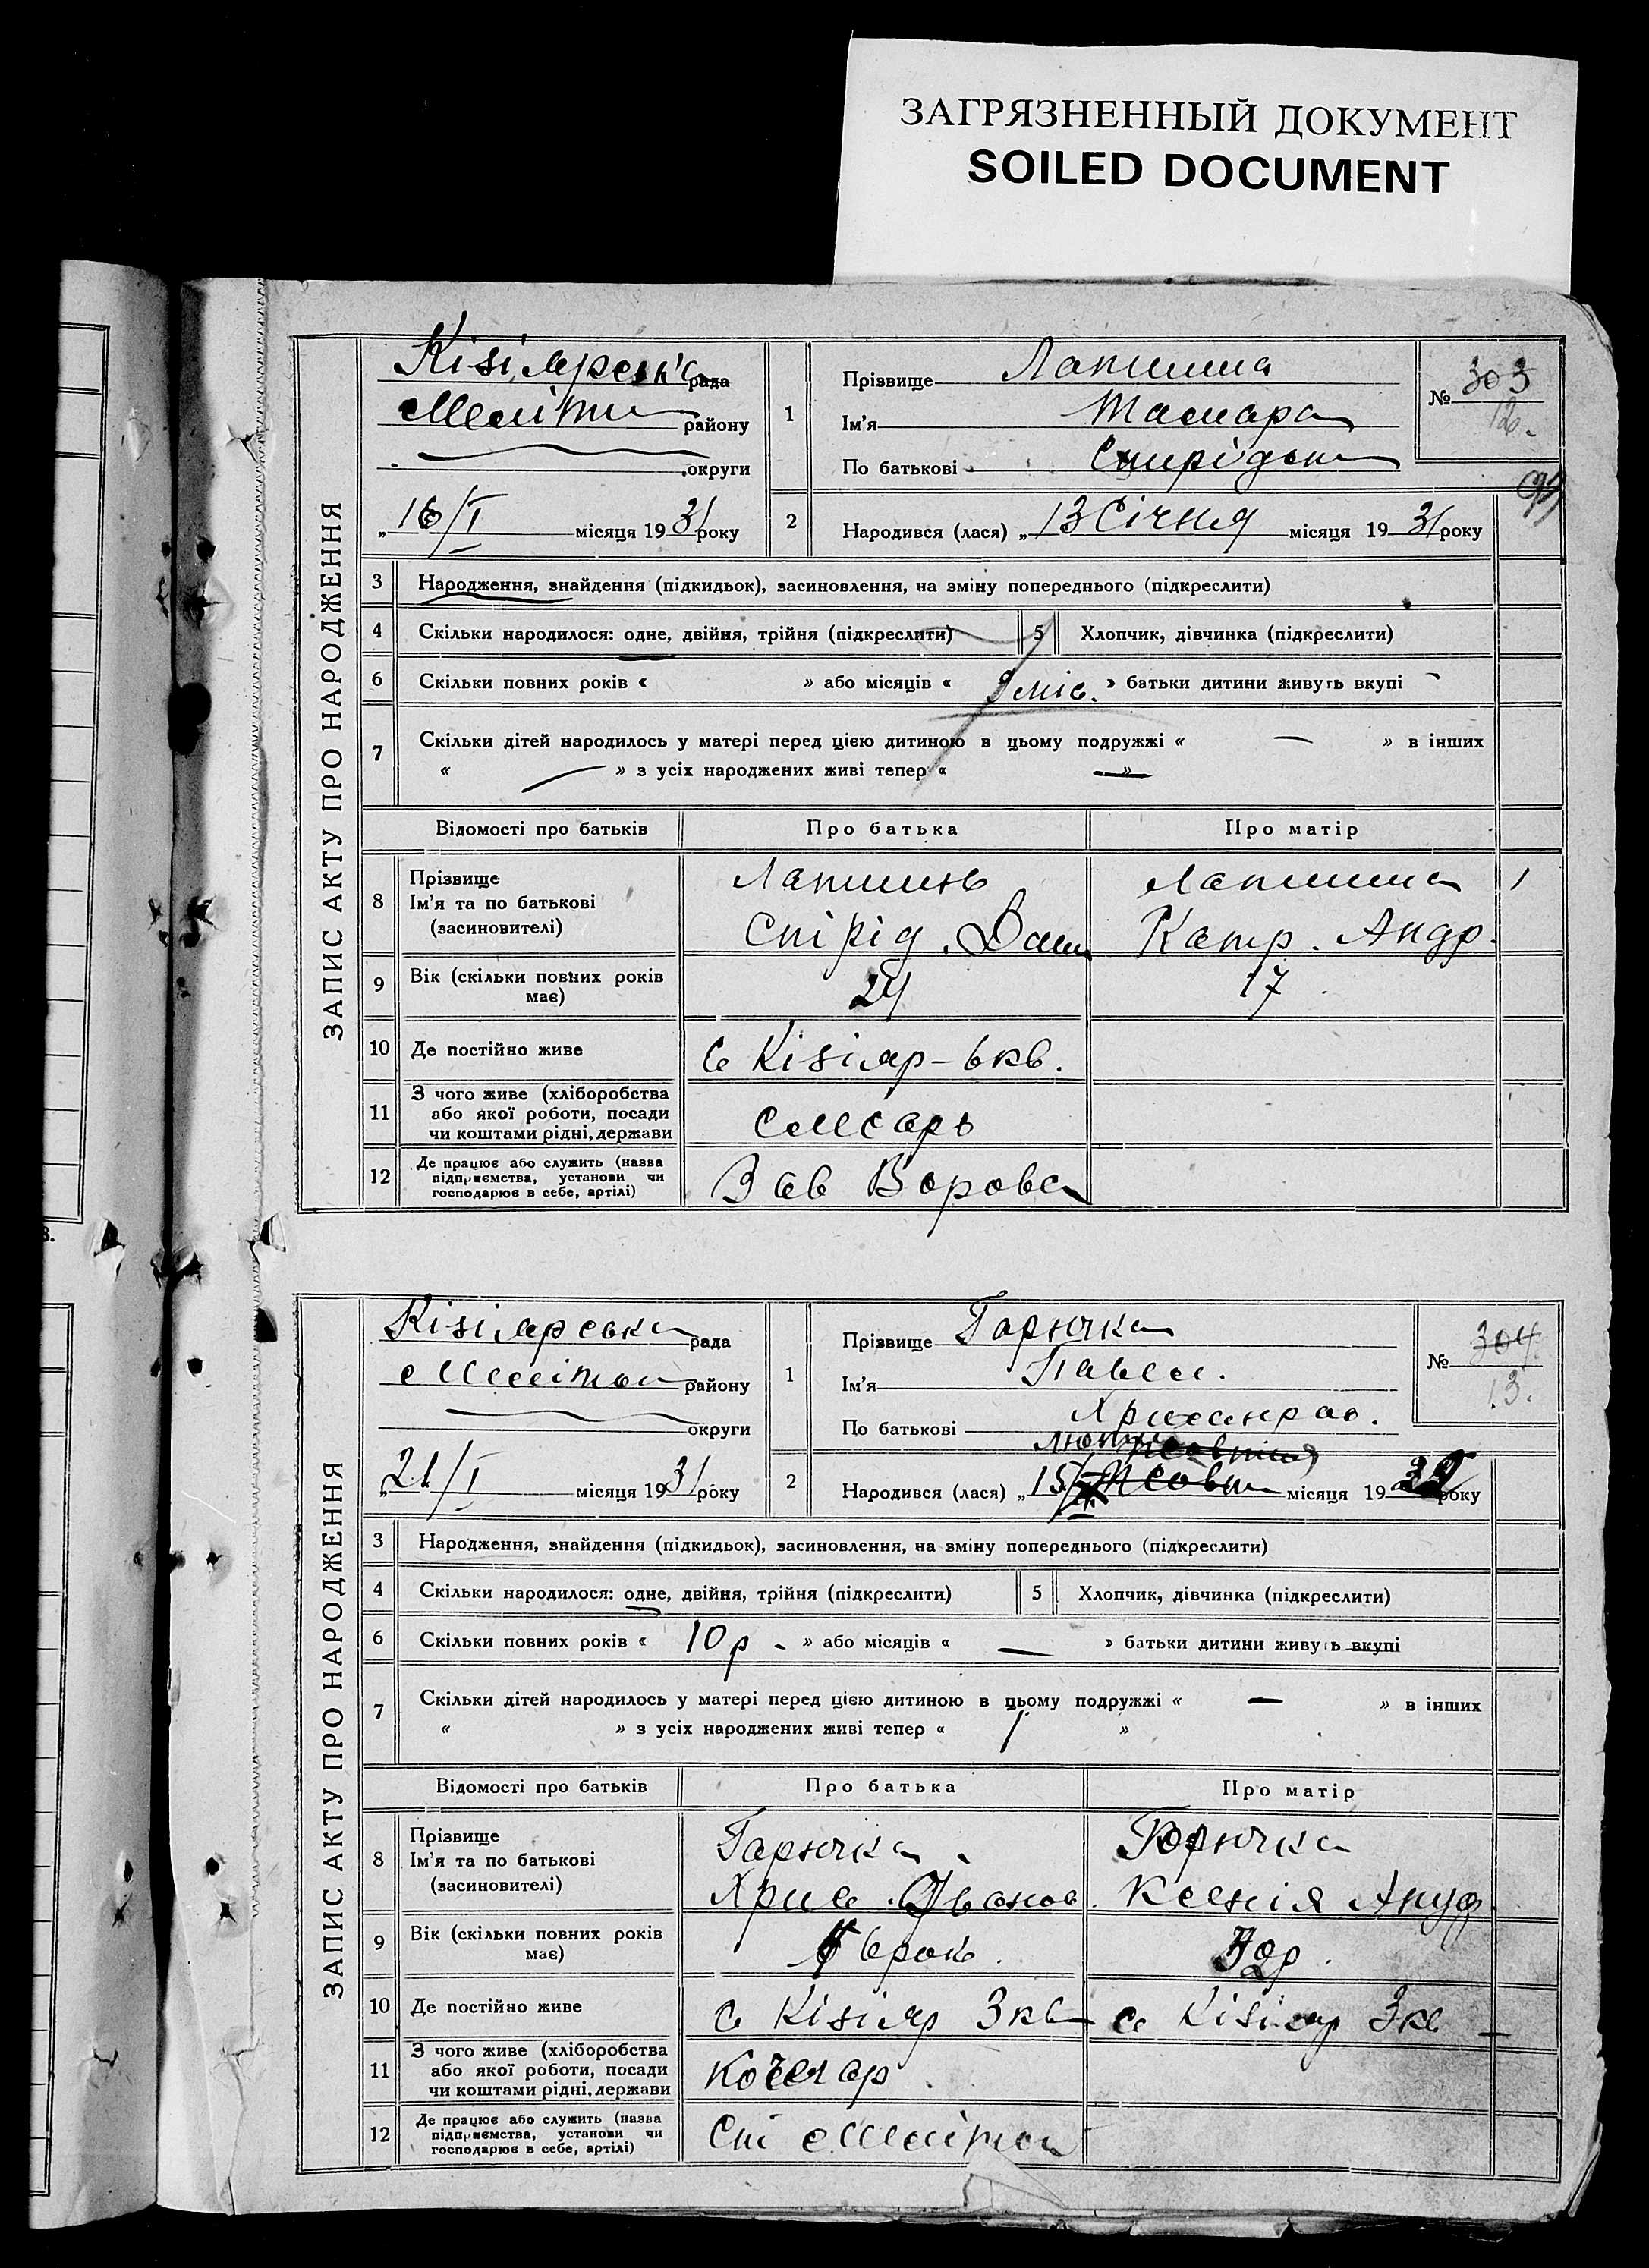 ЗАГРЯЗНЕННЫЙ ДОКУМЕНТ
SOILED DOCUMENT
ЗАПИС АКТУ ПРО НАРОДЖЕННЯ
Кізіярська рада
Меліт району
округи
„16/I місяця 1931 року
1
Прізвище Лапшина
Ім'я Тамара
По батькові Спирідон
№ 303
12.
99
2
Народився (лася) „13 Січня місяця 1931 року
3 Народження, знайдення (підкидьок), засиновлення, на зміну попереднього (підкреслити)
4 Скільки народилося: одне, двійня, трійня (підкреслити) 5 Хлопчик, дівчинка (підкреслити)
6 Скільки повних років « » або місяців « 9 міс. » батьки дитини живуть вкупі
7 Скільки дітей народилось у матері перед цією дитиною в цьому подружжі « — » в інших
« — » з усіх народжених живі тепер « — »
Відомості про батьків Про батька Про матір
8 Прізвище Ім'я та по батькові (засновителі)
Лапшинь Лапшина 1
Спірід. Катр. Андр.
9 Вік (скільки повних років має) 24 17
10 Де постійно живе с Кізіяр-6кв.
11 З чого живе (хліборобства або якої роботи, посади чи коштами рідні, держави слсарь
12 Де працює або служить (назва підприємства, установи чи господарює в себе, артілі) Зав Воровс
ЗАПИС АКТУ ПРО НАРОДЖЕННЯ
Кізіярська рада
Мелітоп району
округи
„21/I місяця 1931 року
1
Прізвище Гарячка
Ім'я Павел.
По батькові
№ 304
13.
2
Народився (лася) „15/ Жовт місяця 19 року
3 Народження, знайдення (підкидьок), засиновлення, на зміну попереднього (підкреслити)
4 Скільки народилося: одне, двійня, трійня (підкреслити) 5 Хлопчик, дівчинка (підкреслити)
6 Скільки повних років « 10 р - » або місяців « — » батьки дитини живуть вкупі
7 Скільки дітей народилось у матері перед цією дитиною в цьому подружжі « — » в інших
« » з усіх народжених живі тепер « 1 »
Відомості про батьків Про батька Про матір
8 Прізвище Ім'я та по батькові (засиновителі)
Гарячка Горячка
Хрис. Іванов. Ксенія
9 Вік (скільки повних років має)
10 Де постійно живе с Кізіяр 3кв с Кізіяр 3кв
11 З чого живе (хліборобства або якої роботи, посади чи коштами рідні, держави Кочегар
12 Де працює або служить (назва підприємства, установи чи господарює в себе, артілі) Ст Мелітоп